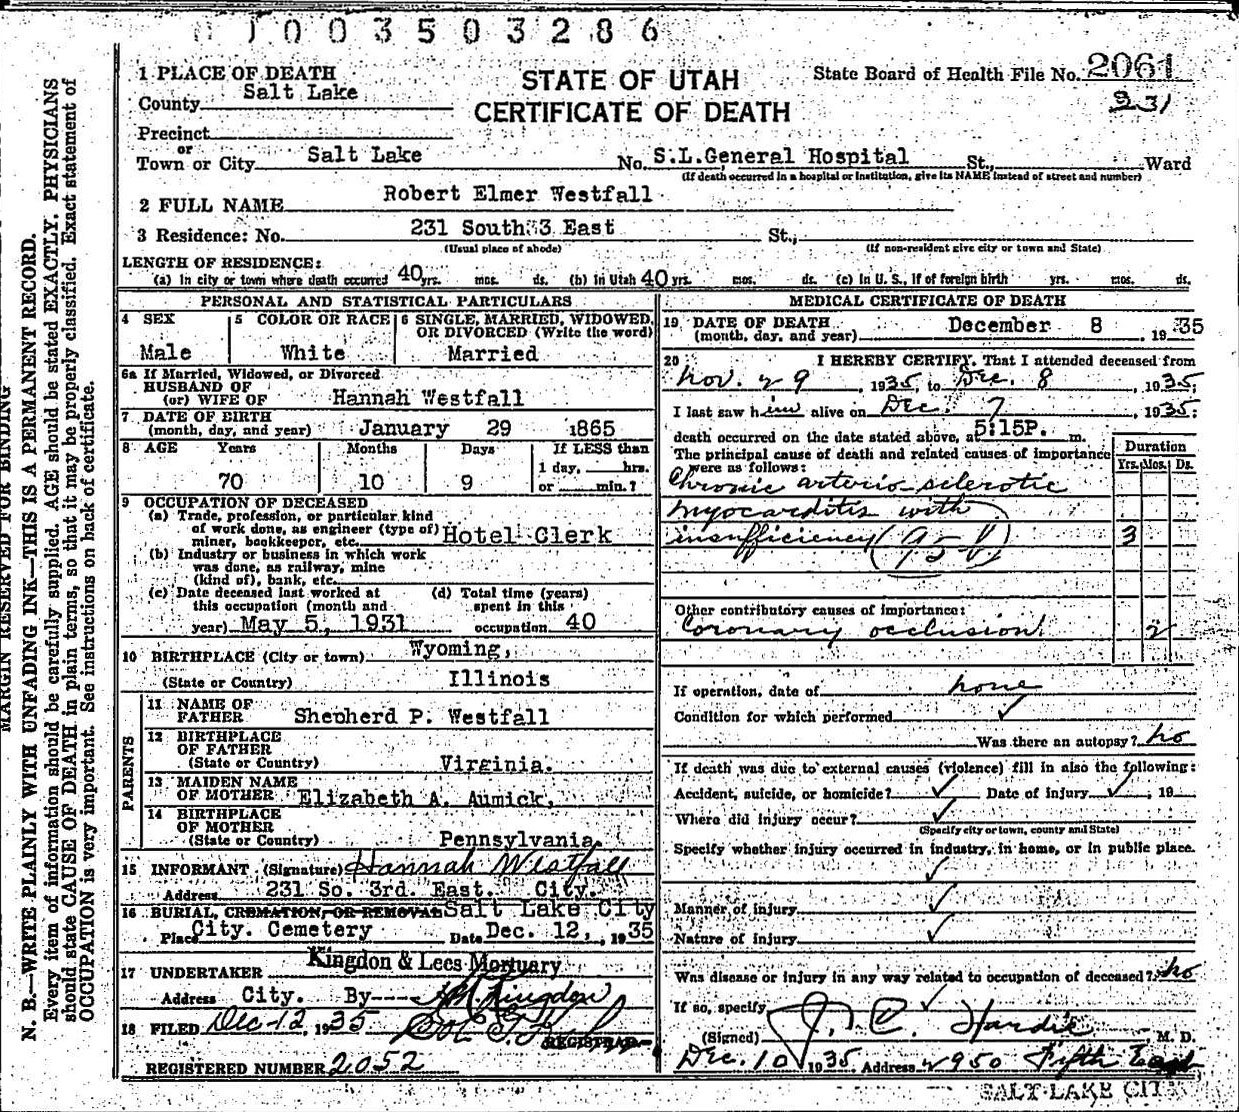 1003503286
1 PLACE OF DEATH
STATE OF UTAH
CERTIFICATE OF DEATH
State Board of Health File No. 2061
231
County Salt Lake
Precinct
or
Town or City Salt Lake No. S.L.General Hospital St., Ward
(If death occurred in a hospital or institution, give its NAME instead of street and number)
2 FULL NAME Robert Elmer Westfall
3 Residence: No. 231 South 3 East St.,
(Usual place of abode) (If non-resident give city or town and State)
LENGTH OF RESIDENCE:
(a) In city or town where death occurred 40 yrs. mos. ds. (b) In Utah 40 yrs. mos. ds. (c) In U. S., if of foreign birth yrs. mos. ds.
PERSONAL AND STATISTICAL PARTICULARS
4 SEX Male
5 COLOR OR RACE White
6 SINGLE, MARRIED, WIDOWED, OR DIVORCED (Write the word) Married
6a If Married, Widowed, or Divorced
HUSBAND OF
(or) WIFE OF Hannah Westfall
7 DATE OF BIRTH
(month, day, and year) January 29 1865
8 AGE Years Months Days If LESS than
1 day, hrs.
70 10 9 or min.?
9 OCCUPATION OF DECEASED
(a) Trade, profession, or particular kind
of work done, as engineer (type of)
miner, bookkeeper, etc. Hotel Clerk
(b) Industry or business in which work
was done, as railway, mine
(kind of), bank, etc.
(c) Date deceased last worked at
this occupation (month and
year) May 5, 1931
(d) Total time (years)
spent in this
occupation 40
10 BIRTHPLACE (City or town) Wyoming,
(State or Country) Illinois
PARENTS
11 NAME OF
FATHER Shepherd P. Westfall
12 BIRTHPLACE
OF FATHER
(State or Country) Virginia.
13 MAIDEN NAME
OF MOTHER Elizabeth A. Aumick,
14 BIRTHPLACE
OF MOTHER
(State or Country) Pennsylvania
15 INFORMANT (Signature) Hannah Westfall
Address 231 So. 3rd. East. City.
16 BURIAL, CREMATION, OR REMOVAL Salt Lake City
Place City. Cemetery Date Dec. 12, , 1935
17 UNDERTAKER Kingdon & Lees Mortuary
Address City. By---
18 FILED Dec-12, 1935
REGISTRAR
REGISTERED NUMBER 2052
MEDICAL CERTIFICATE OF DEATH
19 DATE OF DEATH
(month, day, and year) December 8 , 1935
20 I HEREBY CERTIFY, That I attended deceased from
Nov. 29 , 1935, to Dec. 8 , 1935;
I last saw him alive on Dec. 7 , 1935;
death occurred on the date stated above, at 5:15P. m.
The principal cause of death and related causes of importance
were as follows:
Duration
Yrs. Mos. Ds.
Chronic arterio-sclerotic
myocarditis with
insufficiency (95b) 3
Other contributory causes of importance:
Coronary occlusion 2
If operation, date of none
Condition for which performed
Was there an autopsy? no
If death was due to external causes (violence) fill in also the following:
Accident, suicide, or homicide? Date of injury , 19
Where did injury occur?
(Specify city or town, county and State)
Specify whether injury occurred in industry, in home, or in public place.
Manner of injury
Nature of injury
Was disease or injury in any way related to occupation of deceased? no
If so, specify
(Signed) J. C. Hardie M. D.
Dec. 10 1935 Address 2950 Fifth East
SALT LAKE CITY
MARGIN RESERVED FOR BINDING
N. B.—WRITE PLAINLY WITH UNFADING INK—THIS IS A PERMANENT RECORD.
Every item of information should be carefully supplied. AGE should be stated EXACTLY. PHYSICIANS
should state CAUSE OF DEATH in plain terms, so that it may be properly classified. Exact statement of
OCCUPATION is very important. See instructions on back of certificate.